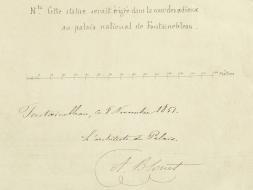 Nta Cette statue serait érigée dans la cour des adieux
au palais national de Fontainebleau.
Fontainebleau, ce 8 Novembre 1851.
L'architecte du Palais,
A. Blouet